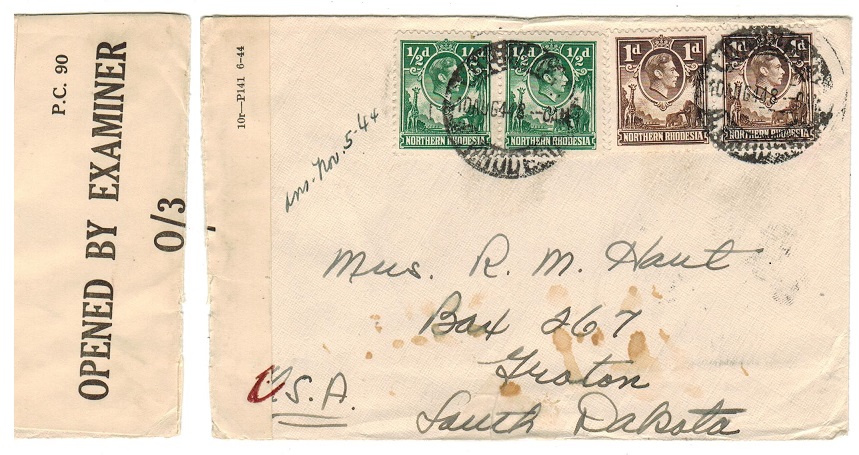 P.C. 90
OPENED BY EXAMINER
O/3
10r—P141 6-44
½d ½d
NORTHERN RHODESIA
½d ½d
NORTHERN RHODESIA
1d 1d
NORTHERN RHODESIA
1d 1d
NORTHERN RHODESIA
ans. Nov. 5-44
Mrs. R. M. Haut
Box 267
Groton
South Dakota
U.S.A.